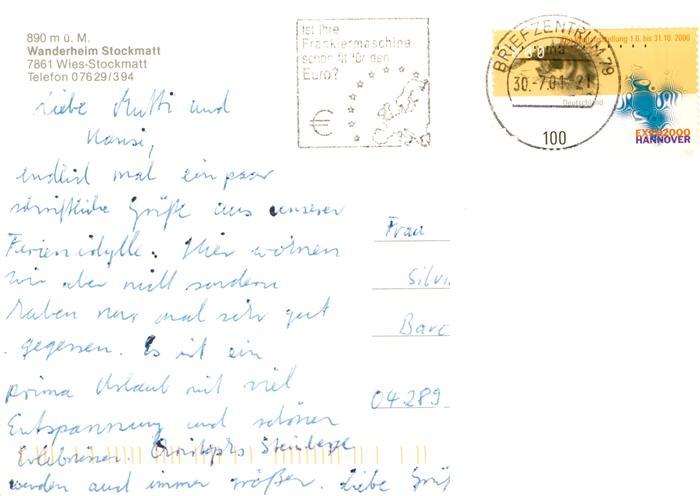 890 m ü. M.
Wanderheim Stockmatt
7861 Wies-Stockmatt
Telefon 07629/394
Ist Ihre
Frankiermaschine
schon fit für den
Euro?
€
BRIEFZENTRUM 79
30.-7.01-21
100
Weltausstellung 1.6. bis 31.10.2000
Deutschland
EXPO2000
HANNOVER
Liebe Mutti und
Hansi,
endlich mal ein paar
schriftliche Grüße aus unserer
Ferienidylle. Hier wohnen
wir aber nicht sondern
haben nur mal sehr gut
gegessen. Es ist ein
prima Urlaub mit viel
Entspannung und schönen
Erlebnissen. Christophs Steinberge
werden auch immer größer. Liebe Grüß
Frau
Silvi
Barc
04289